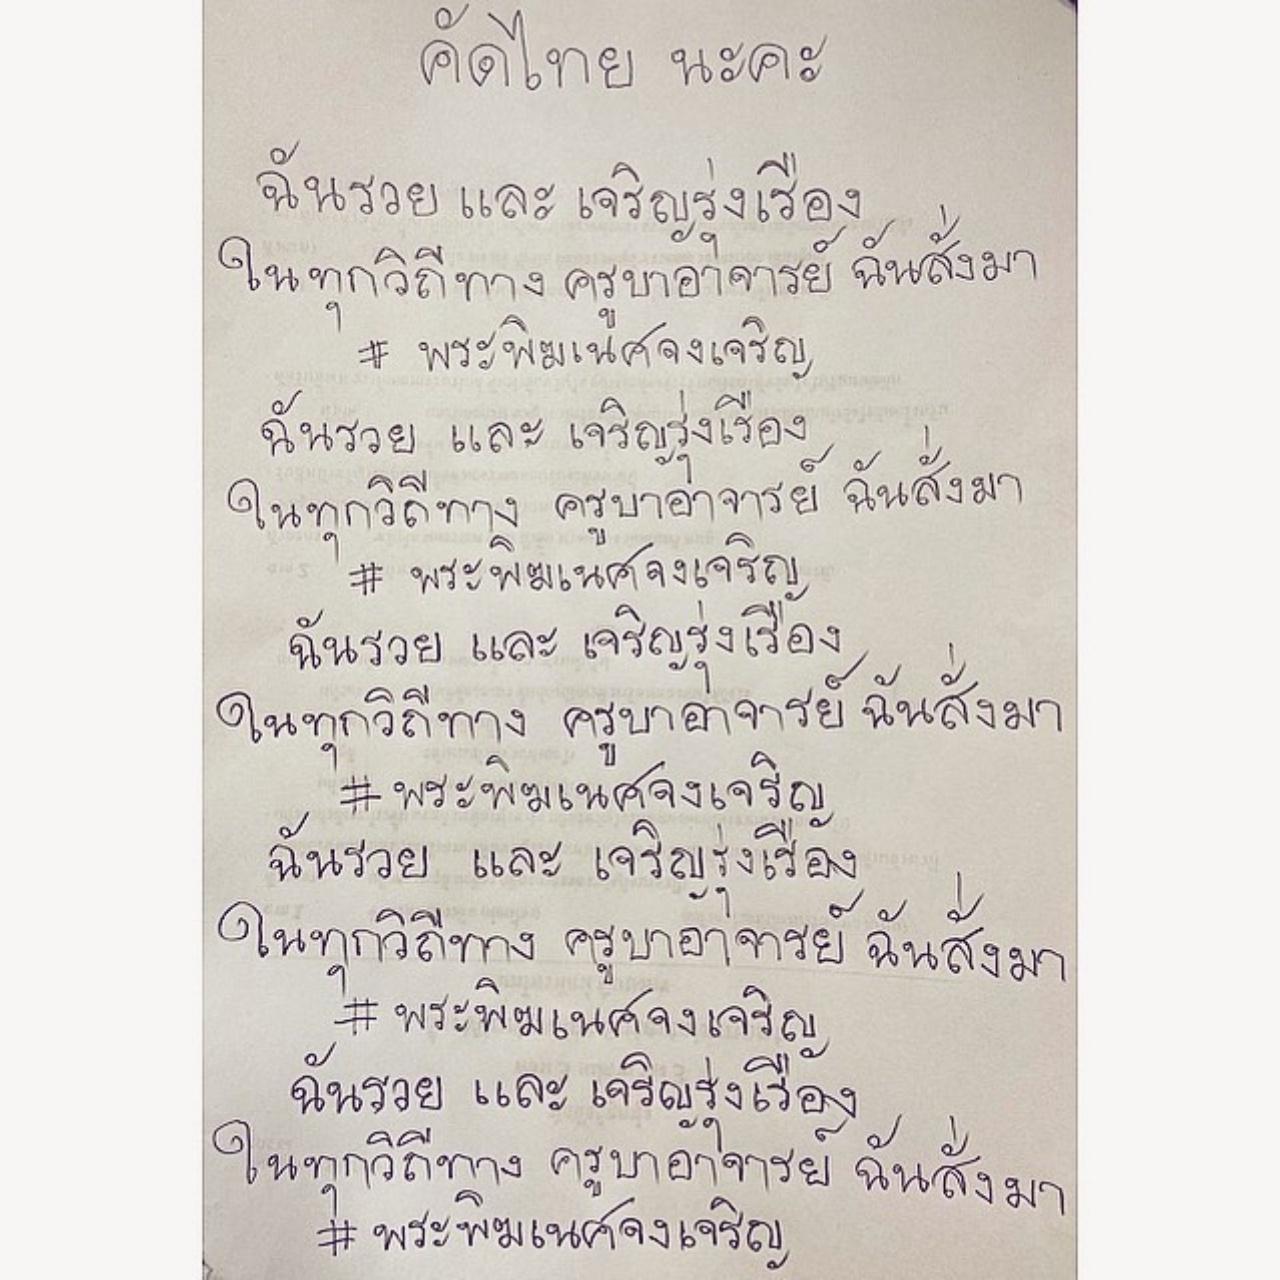 คัดไทย นะคะ
ฉันรวย และ เจริญรุ่งเรือง
ในทุกวิถีทาง ครูบาอาจารย์ ฉันสั่งมา
# พระพิฆเนศจงเจริญ
ฉันรวย และ เจริญรุ่งเรือง
ในทุกวิถีทาง ครูบาอาจารย์ ฉันสั่งมา
# พระพิฆเนศจงเจริญ
ฉันรวย และ เจริญรุ่งเรือง
ในทุกวิถีทาง ครูบาอาจารย์ ฉันสั่งมา
# พระพิฆเนศจงเจริญ
ฉันรวย และ เจริญรุ่งเรือง
ในทุกวิถีทาง ครูบาอาจารย์ ฉันสั่งมา
# พระพิฆเนศจงเจริญ
ฉันรวย และ เจริญรุ่งเรือง
ในทุกวิถีทาง ครูบาอาจารย์ ฉันสั่งมา
# พระพิฆเนศจงเจริญ